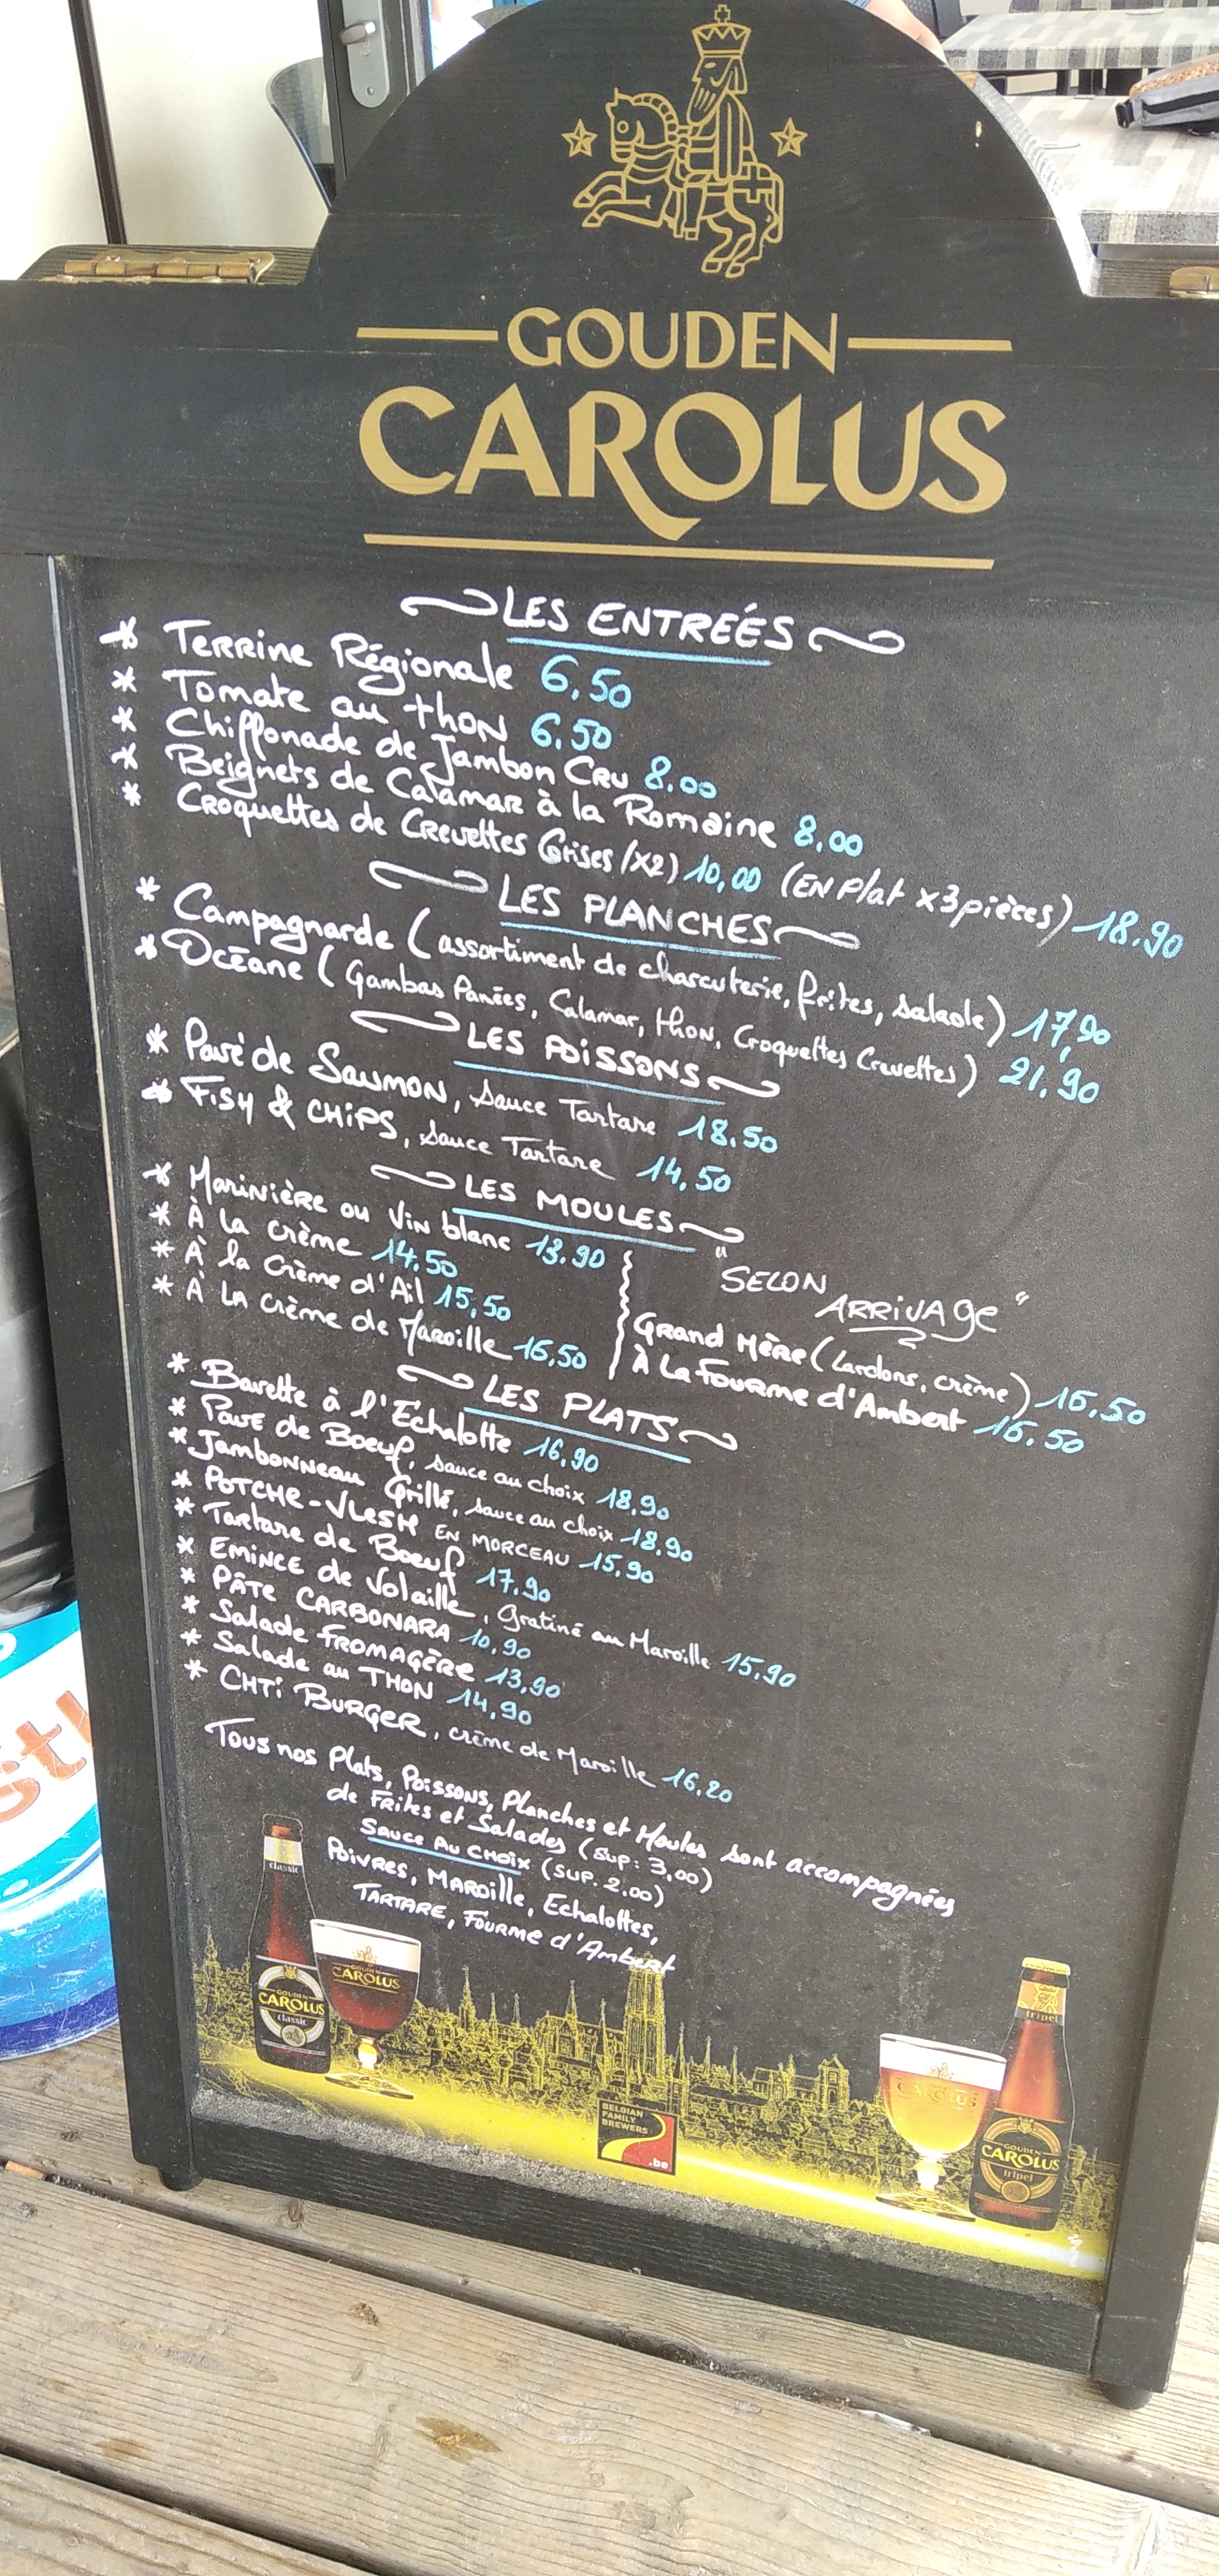 GOUDEN
CAROLUS
LES ENTREÉS
* Terrine Régionale 6,50
* Tomate au thon 6.50
* Chiffonade de Jambon Cru 8.00
* Beignets de Calamar à la Romaine 8,00
* Croquettes de Crevettes Grises (x2) 10,00 (EN Plat x3 pièces) 18.90
LES PLANCHES
* Campagnarde (assortiment de charcuterie, frites, salade) 17,90
* Océane (Gambas Panées, Calamar, thon, Croquettes Crevettes) 21.90
LES POISSONS
* Pavé de Saumon, Sauce Tartare 18.50
* Fish & CHiPS, Sauce Tartare 14,50
LES MOULES
* Marinière ou Vin blanc 13.90
* À la crème 14.50
* À la Crème d'Ail 15,50
* À la crème de Maroille 16,50
"SELON
ARRIVAGE"
Grand Mère (Lardons, crème) 16.50
À La Fourme d'Ambert 16.50
LES PLATS
* Bavette à l'Echalotte 16,90
* Pavé de Boeuf, sauce au choix 18.90
* Jambonneau Grillé, sauce au choix 18.90
* POTCHE-VLESH EN MORCEAU 15.90
* Tartare de Boeuf 17.90
* EMINCE de Volaille, Gratiné au Maroille 15.90
* PÂTE CARBONARA 10.90
* Salade FROMAGÈRE 13,90
* Salade au THON 14,90
* CHTi BURGER, crème de Maroille 16,20
Tous nos Plats, Poissons, Planches et Moules sont accompagnées
de Frites et Salades (Sup: 3,00)
SAUCE AU CHOIX (SUP. 2.00)
Poivres, MAROille, Echalottes,
TARTARE, Fourme d'Ambert
classic
GOUDEN
CAROLUS
classic
GOUDEN
CAROLUS
BELGIAN
FAMILY
BREWERS
.be
CAROLUS
tripel
GOUDEN
CAROLUS
tripel